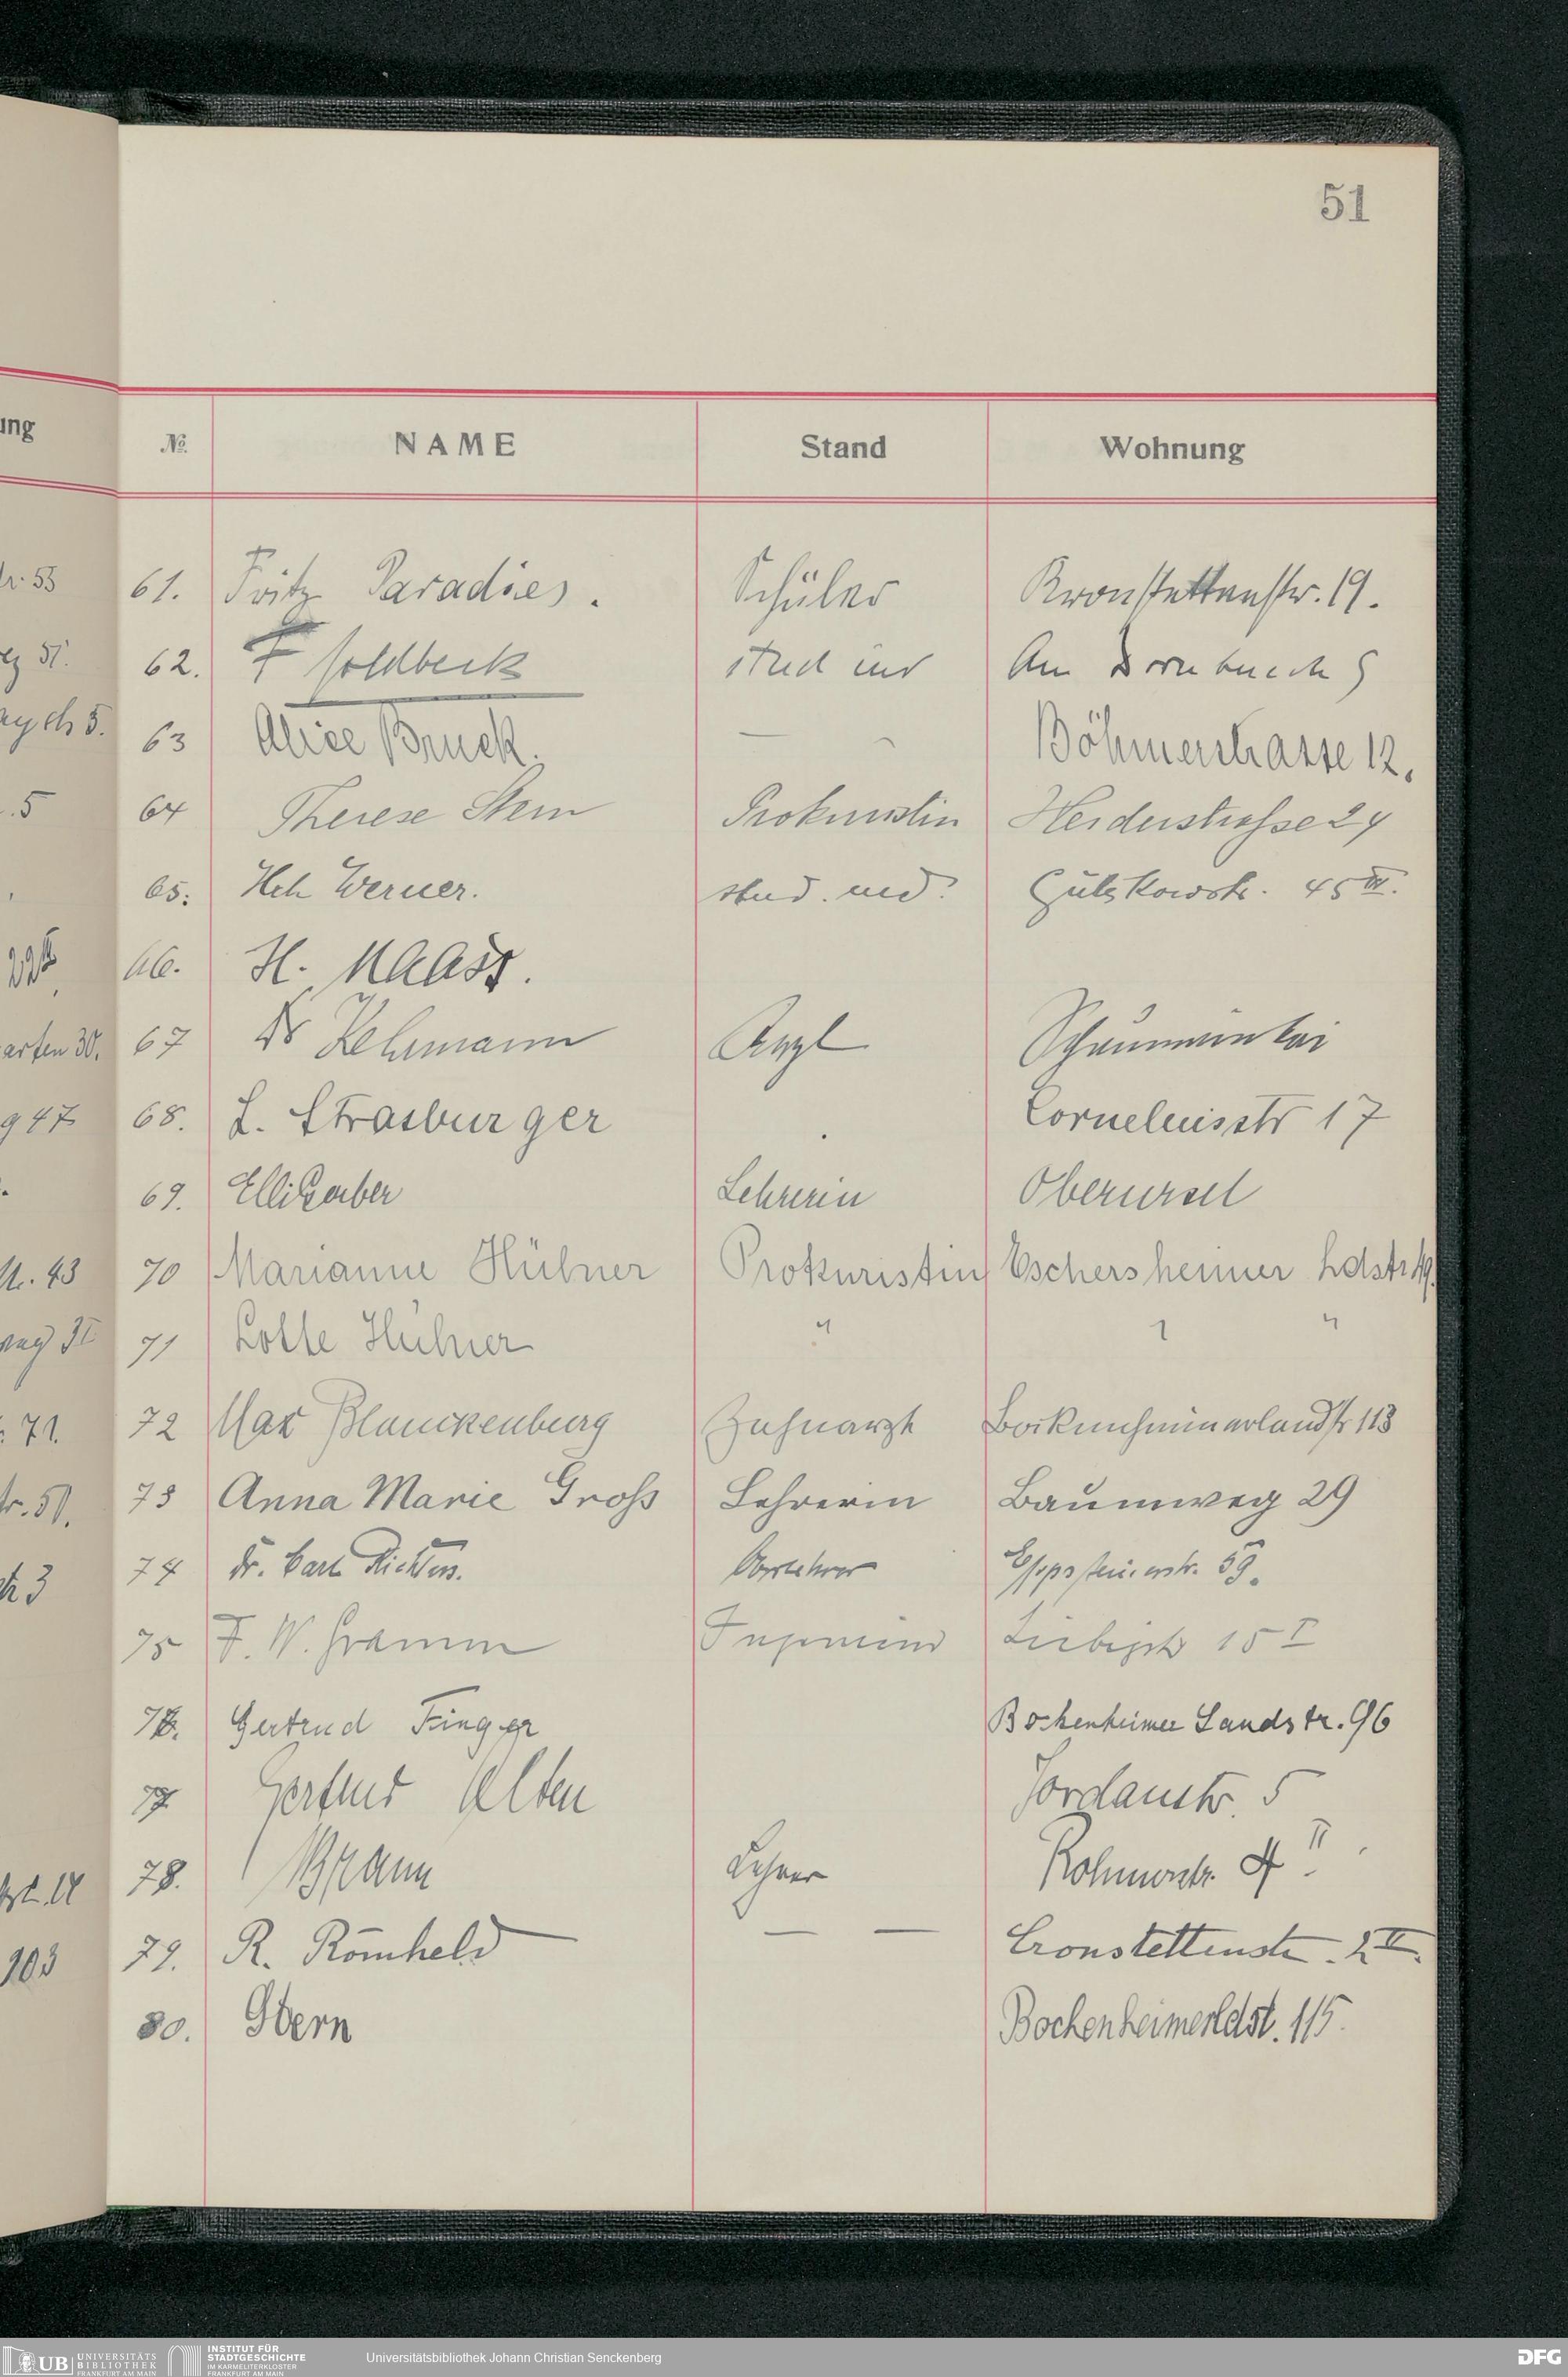 51
ung
№ NAME Stand Wohnung
61. Fritz Paradies. Schüler Kronstettenstr. 19.
62. F Goldbeck stud Am Dornbusch 5
63 Alice Bruck. — Böhmerstrasse 12.
64 Therese Stern Prokuristin Herderstrasse 24
65. Hch Werner. stud. med. Gutzkowstr. 45 III.
66. H. Maass.
67 Dr Lehmann Arzt Schaumainkai
68. L. Strasburger Corneliusstr 17
69. Elli Gerber Lehrerin Oberursel
70 Marianne Hübner Prokuristin Eschersheimer Ldstr 19.
71 Lotte Hübner " " "
72 Max Blanckenburg Zahnarzt Bockenheimerlandstr 113
73 Anna Marie Groß Lehrerin Baumweg 29
74 Dr. Carl Richter. Oberlehrer Eppsteinerstr. 59.
75 F. W. Gramm Ingenieur Liebigstr 15 I
76. Gertrud Finger Bockenheimer Landstr. 96
77 Gertrud Alten Jordanstr. 5
78. Braun Lehrer Rohmerstr. 4 II.
79. R. Römheld — — Cronstettenstr. 2 II.
80. Stern Bockenheimerldst. 115.
r. 53
5.
. 5
arten 30.
g 47
43
. 71.
r. 51.
3
103
UB UNIVERSITÄTS
BIBLIOTHEK
FRANKFURT AM MAIN
INSTITUT FÜR
STADTGESCHICHTE
IM KARMELITERKLOSTER
FRANKFURT AM MAIN
Universitätsbibliothek Johann Christian Senckenberg
DFG